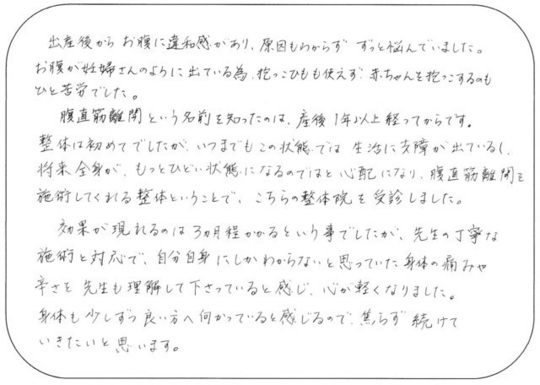 出産後から お腹に違和感があり、原因もわからず ずっと悩んでいました。
お腹が妊婦さんのように出ている為、抱っこひもも使えず 赤ちゃんを抱っこするのも
ひと苦労でした。
腹直筋離開という名前を知ったのは、産後1年以上経ってからです。
整体は初めてでしたが、いつまでもこの状態では 生活に支障が出ているし、
将来全身が、もっとひどい状態になるのではと心配になり、腹直筋離開を
施術してくれる整体ということで、こちらの整体院を受診しました。
効果が現れるのは3ヵ月程かかるという事でしたが、先生の丁寧な
施術と対応で、自分自身にしかわからないと思っていた身体の痛みや
辛さを 先生も理解して下さっていると感じ、心が軽くなりました。
身体も少しずつ良い方へ向かっていると感じるので、焦らず 続けて
いきたいと思います。